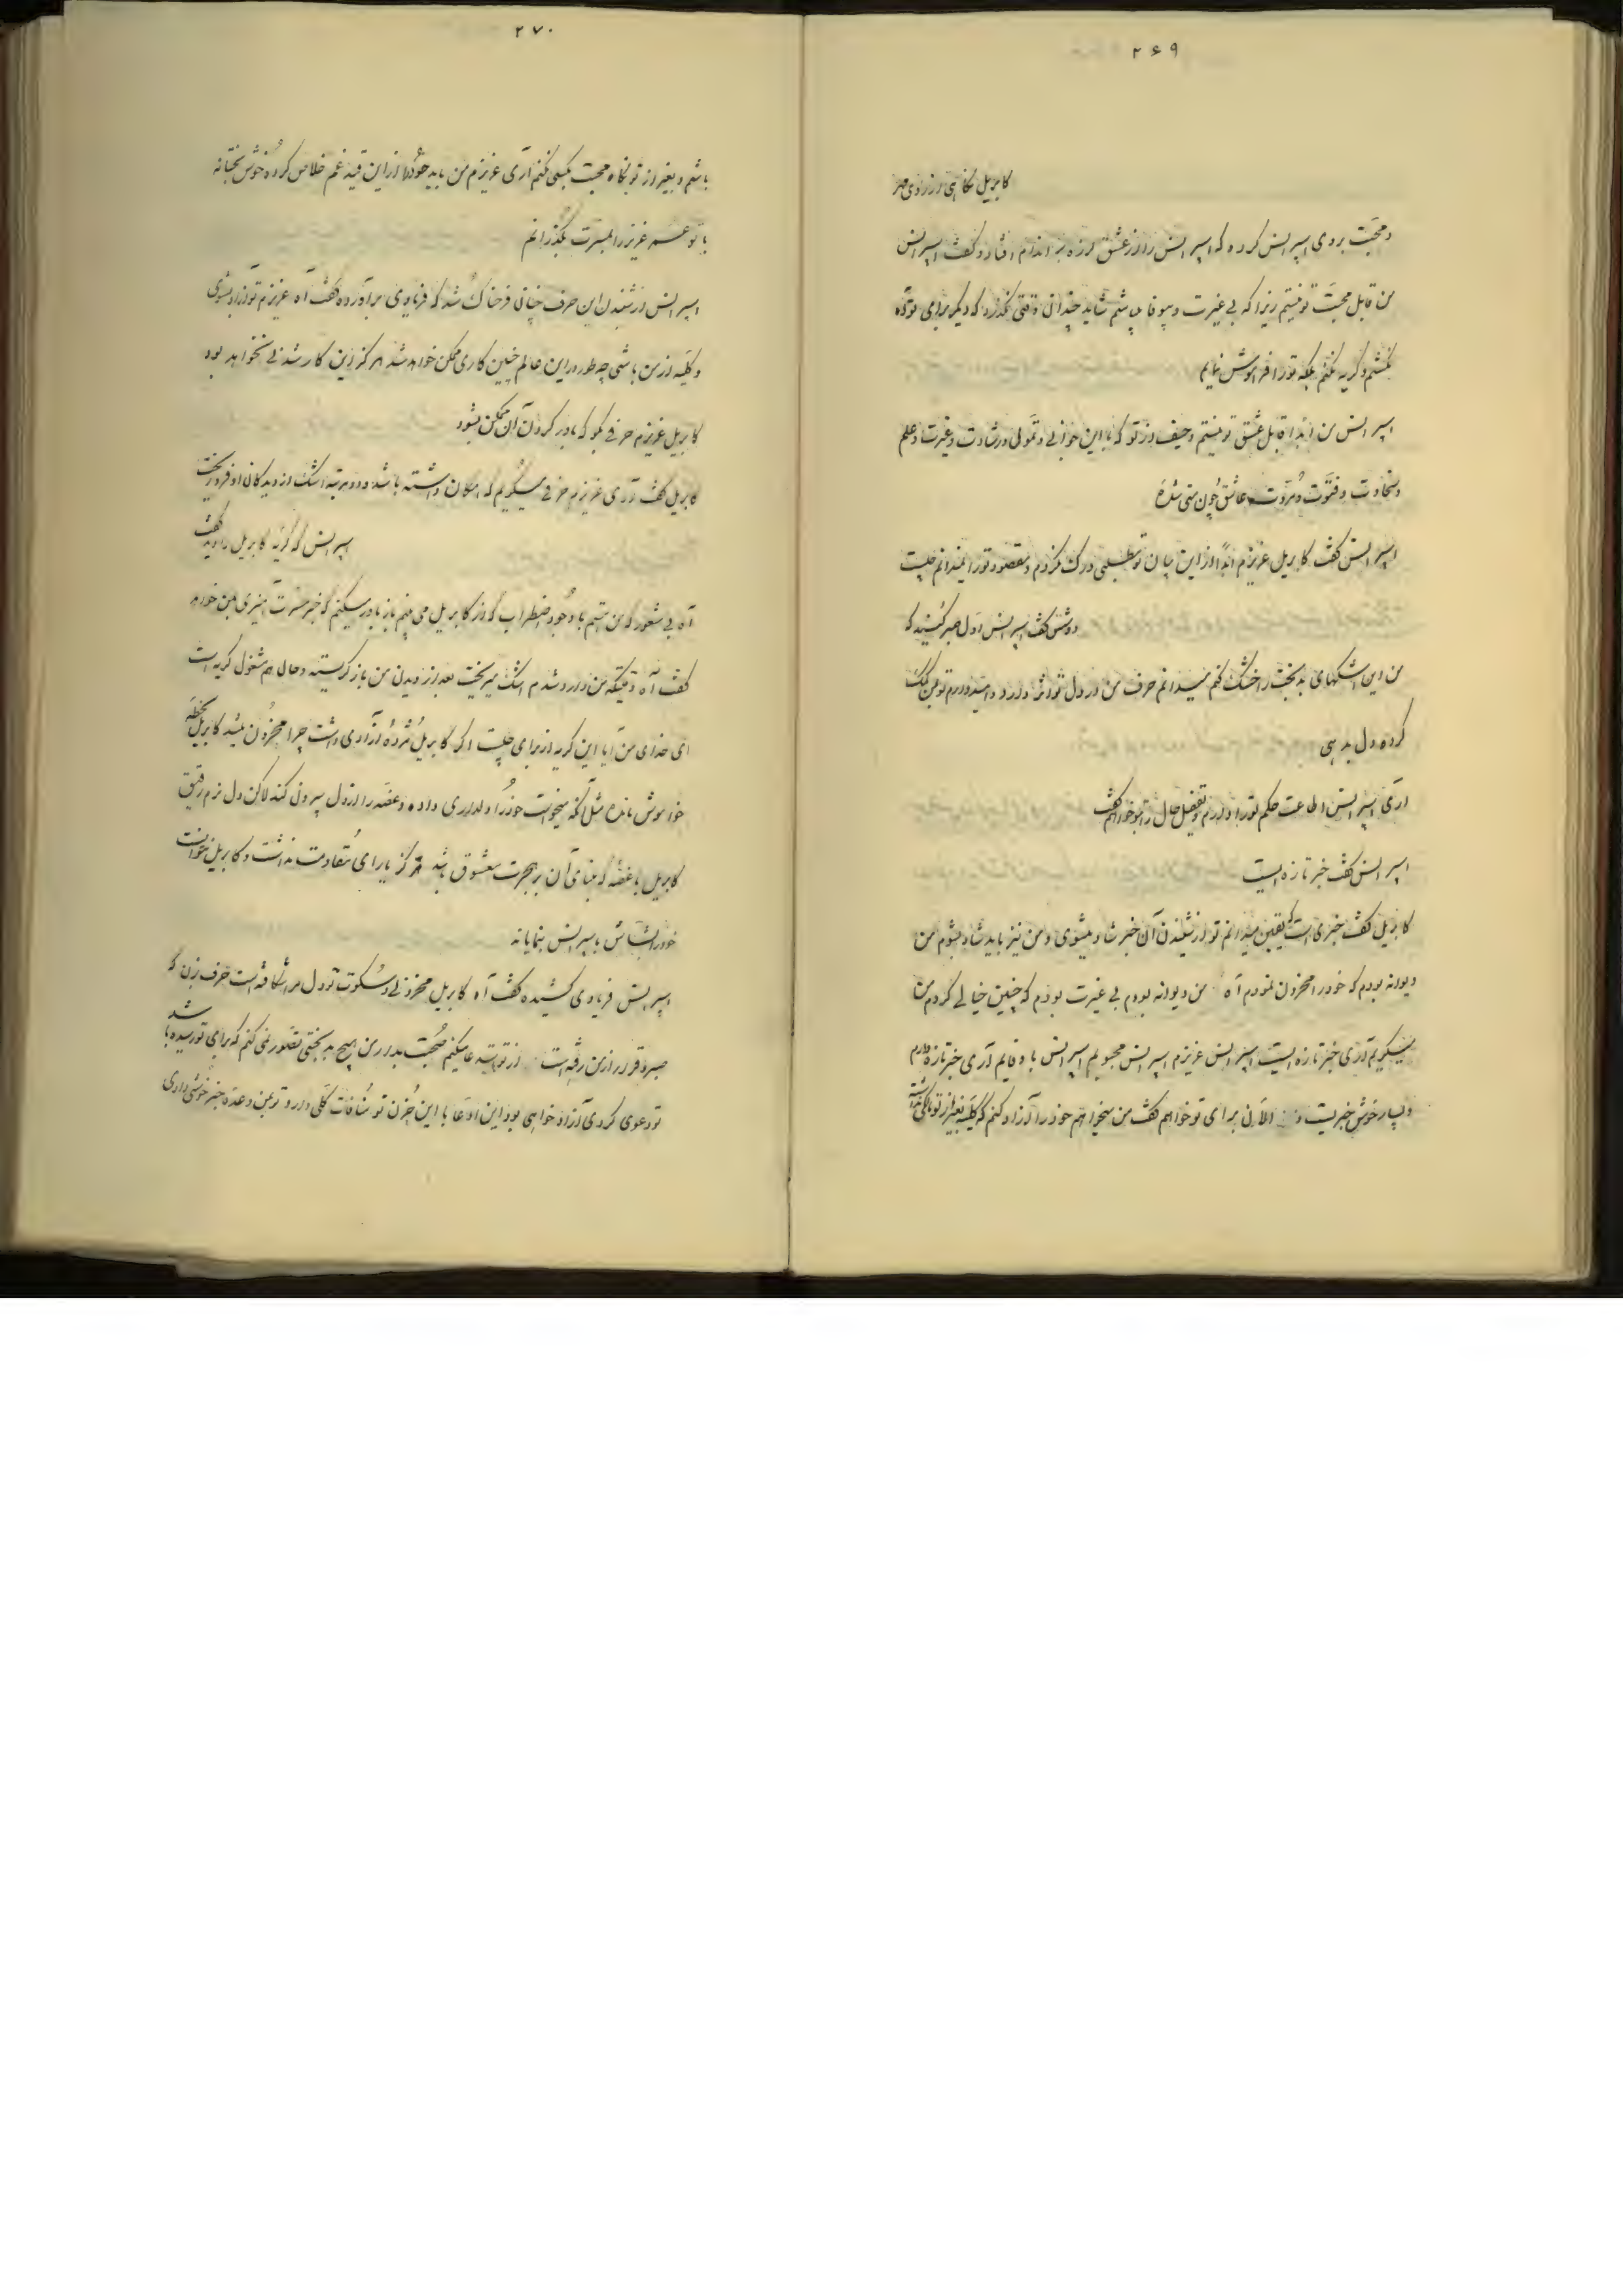 ۲۶۹
کابریل نکاهی از روی مهر
ومحبت بروی اسپرانس کرده که اسپرانس را از عشق لرزه بر اندام افتاد و کفت اسپرانس
من قابل محبت تو نیستم زیرا که بی غیرت و بیوفا میباشم شاید چندان وقتی نکذرد که دیکر برای تو آه
نکشم و کریه نکنم بلکه تو را فراموش نمایم
اسپرانس من ابدا قابل عشق تو نیستم و حیف از تو که با این جوانی و تمولی و رشادت و غیرت و علم
وسخاوت و فتوت و مروت عاشق چون منی شدهٔ
اسپرانس کفت کابریل عزیزم ابدا از این بیان تو مطلبی درک نکردم و مقصود تو را نمیدانم چیست
دوشس کفت اسپرانس اول صبر کنید که
من این اشکهای بدبخت را خشک کنم میدانم حرف من در دل تو اثر دارد و امید دارم تو بمن کمک
کرده دل بدهی
آری اسپرانس اطاعت حکم تو را دارم و تفصیل حال را بتو خواهم کفت
اسپرانس کفت خبر تازه ایست
کابریل کفت خبری است که یقین میدانم تو از شنیدن آن خبر شاد میشوی و من نیز باید شاد بشوم من
دیوانه بودم که خود را محزون نمودم آه من دیوانه بودم بی غیرت بودم که چنین خیالی کردم من
میکریم آری خبر تازه ایست اسپرانس عزیزم اسپرانس محبوبم اسپرانس با وفایم آری خبر تازه دارم
و بسیار خوش خبریست و الآن برای تو خواهم کفت من میخواهم خود را آزاد کنم که کلیه بغیر از تو مالکی نداشته
۲۷۰
باشم و بغیر از تو نکاه محبت بکسی نکنم آری عزیزم من باید خود را از این قید غم خلاص کرده خوش بختانه
با تو عمر عزیز را بمسرت بکذرانم
اسپرانس از شنیدن این حرف چنان فرحناک شد که فریادی برآورده کفت آه عزیزم تو آزاد بشوی
و کلیه از من باشی چه طور در این عالم چنین کاری ممکن خواهد شد هرکز این کار شدنی نخواهد بود
کابریل عزیزم حرفی بکو که باور کردن آن ممکن بشود
کابریل کفت آری عزیزم حرفی میکویم که امکان داشته باشد و دو مرتبه اشک از دیدکان او فرو ریخت
اسپرانس که کریه کابریل را دید کفت
آه بی شعور که من هستم با وجود اضطراب که در کابریل می بینم باز باور میکنم که خبر مسرت آمیزی بمن خواهد
کفت آه وقتیکه من وارد شدم اشک میریخت بعد از دیدن من باز کریسته و حال هم مشغول کریه است
ای خدای من آیا این کریه از برای چیست اکر کابریل مژدهٔ آزادی داشت چرا محزون میشد کابریل لحظهٔ
خاموش مانده مثل آنکه میخواست خود را دلداری داده و غصه را از دل بیرون کند لاکن دل نرم رقیق
کابریل با غصه که بنای آن بر هجرت معشوق باشد هرکز یارای مقاومت نداشت و کابریل نتوانست
خود را بشاش باسپرانس بنمایاند
اسپرانس فریادی کشیده کفت آه کابریل محزونی و سکوت تو دل مرا شکافته است حرف زن که
صبر و قرار از من رفته است از تو استدعا میکنم صحبت بدار من هیچ بدبختی تصور نمی کنم که برای تو رسیده باشد
تو دعوی کردی آزاد خواهی بود این ادعا با این حزن تو منافات کلی دارد تو بمن وعدهٔ خبر خوشی دادی